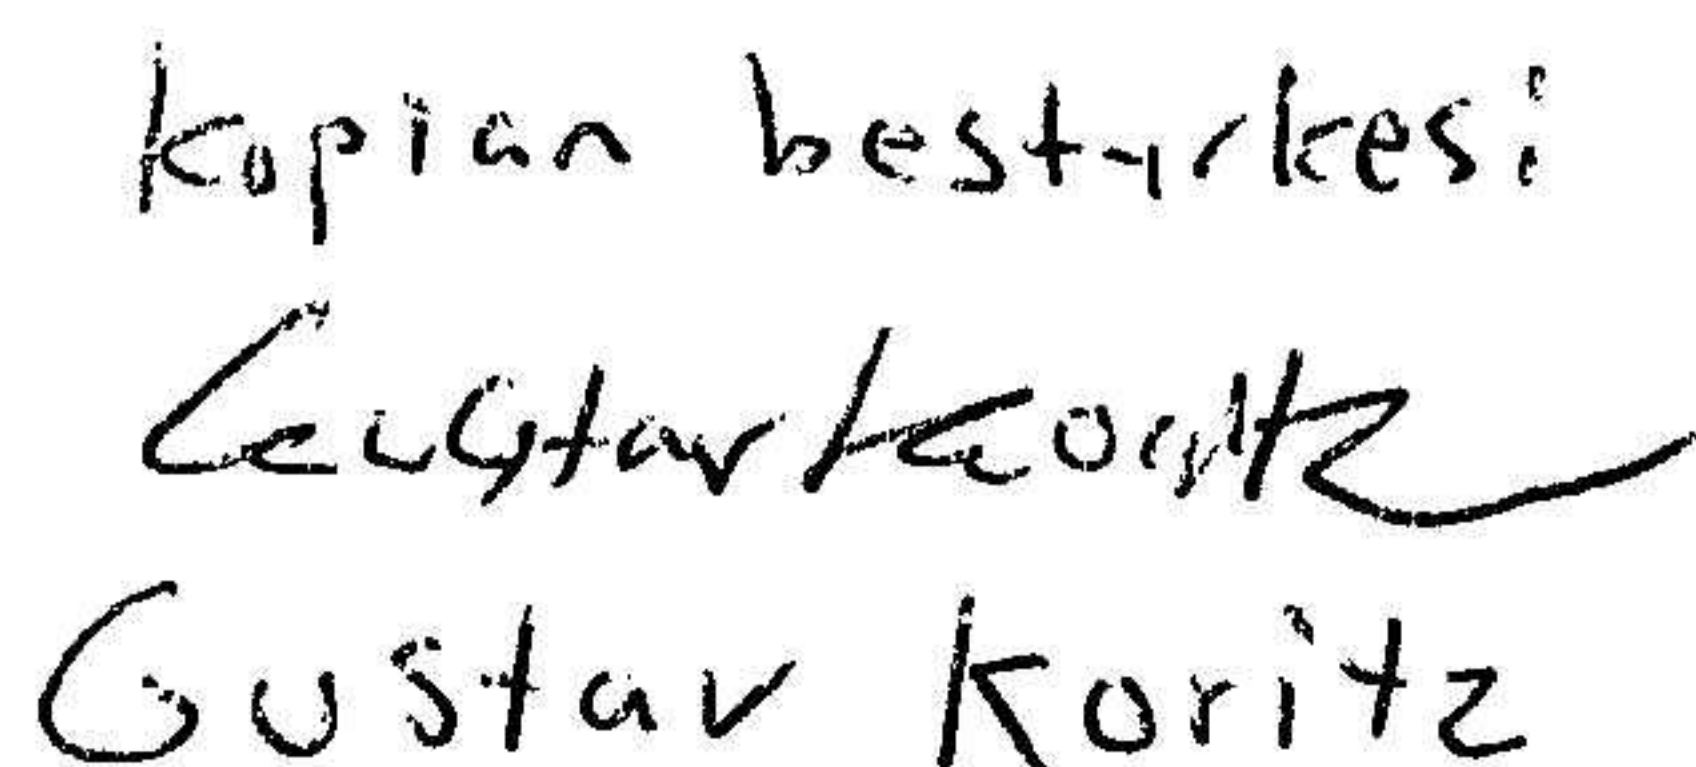 kopian bestyrkes:
Gustav Koritz
Gustav Koritz